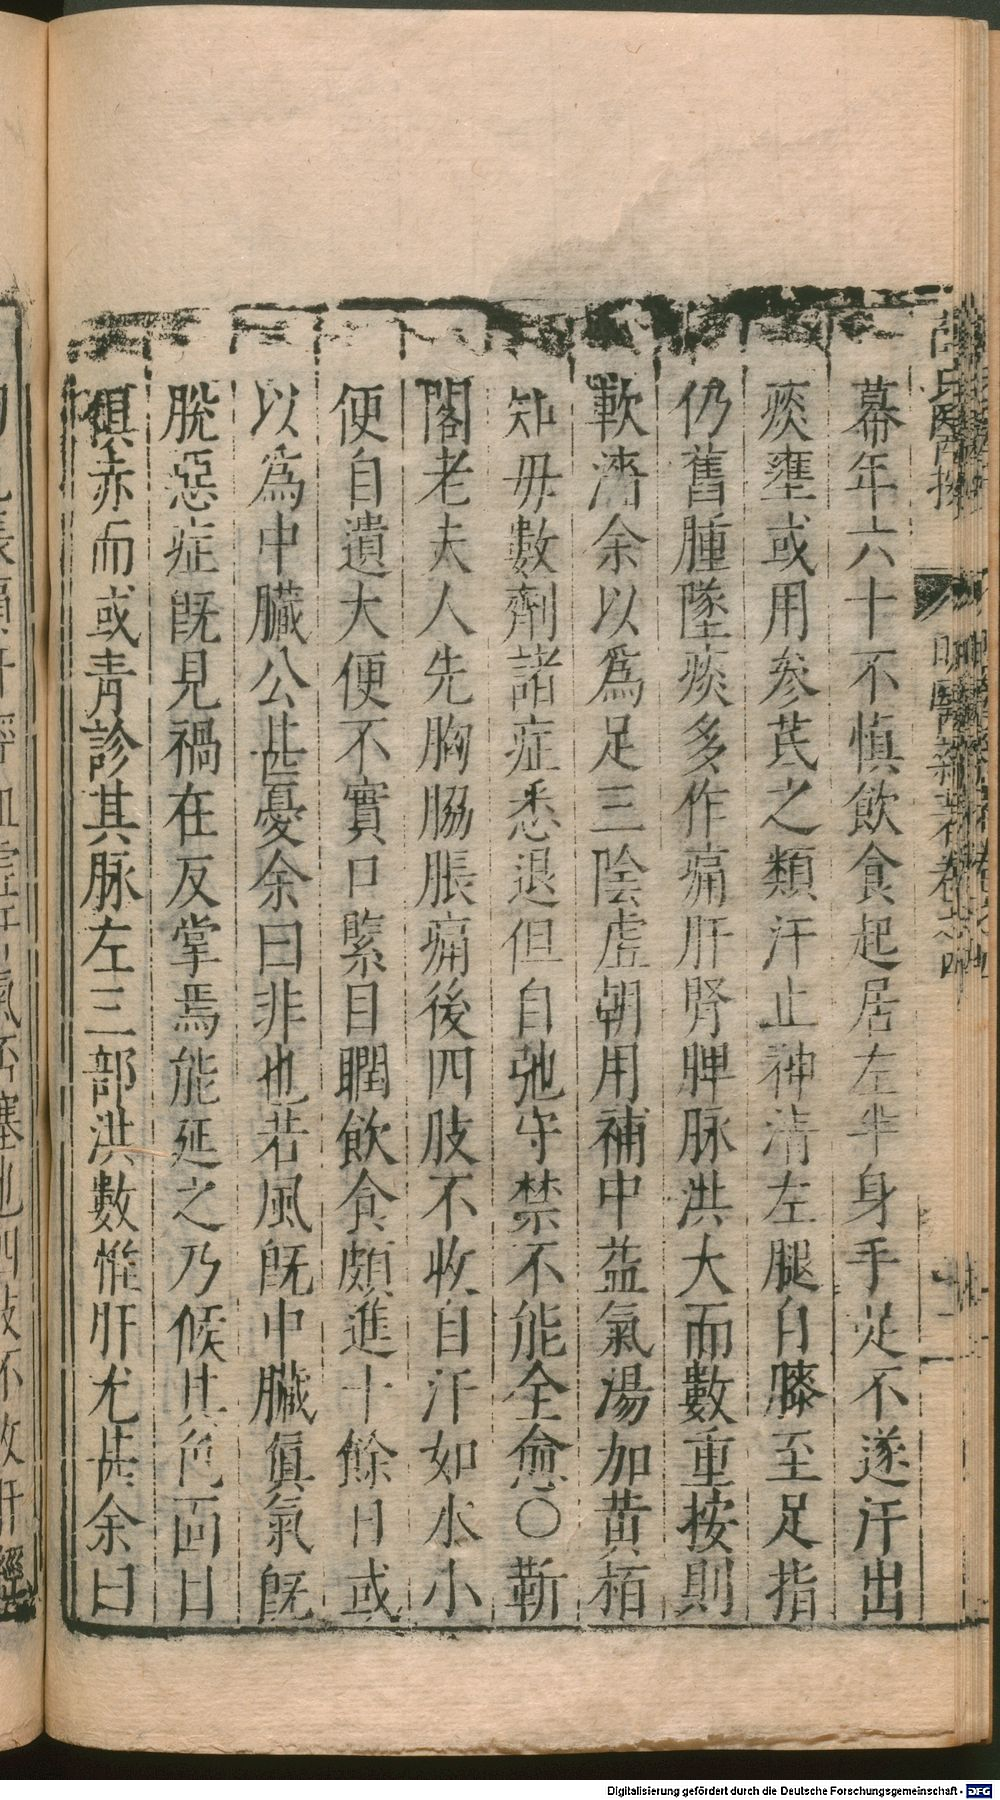 幕年六十不慎飲食起居左半身手足不遂汗出
痰壅或用參芪之類汗止神清左腿自膝至足指
仍舊腫墜痰多作痛肝腎脾脉洪大而數重按則
軟濇余以爲足三陰虛朝用補中益氣湯加黄栢
知毋數劑諸症悉退但自弛守禁不能全愈〇靳
閣老夫人先胸脇脹痛後四肢不收自汗如水小
便自遺大便不實口緊目瞤飲食頗進十餘日或
以爲中臟公甚憂余曰非也若風旣中臟眞氣旣
脫惡症旣見禍在反掌焉能延之乃候其色面目
俱赤而或青診其脉左三部洪數惟肝尤甚余曰
Digitalisierung gefördert durch die Deutsche Forschungsgemeinschaft - DFG